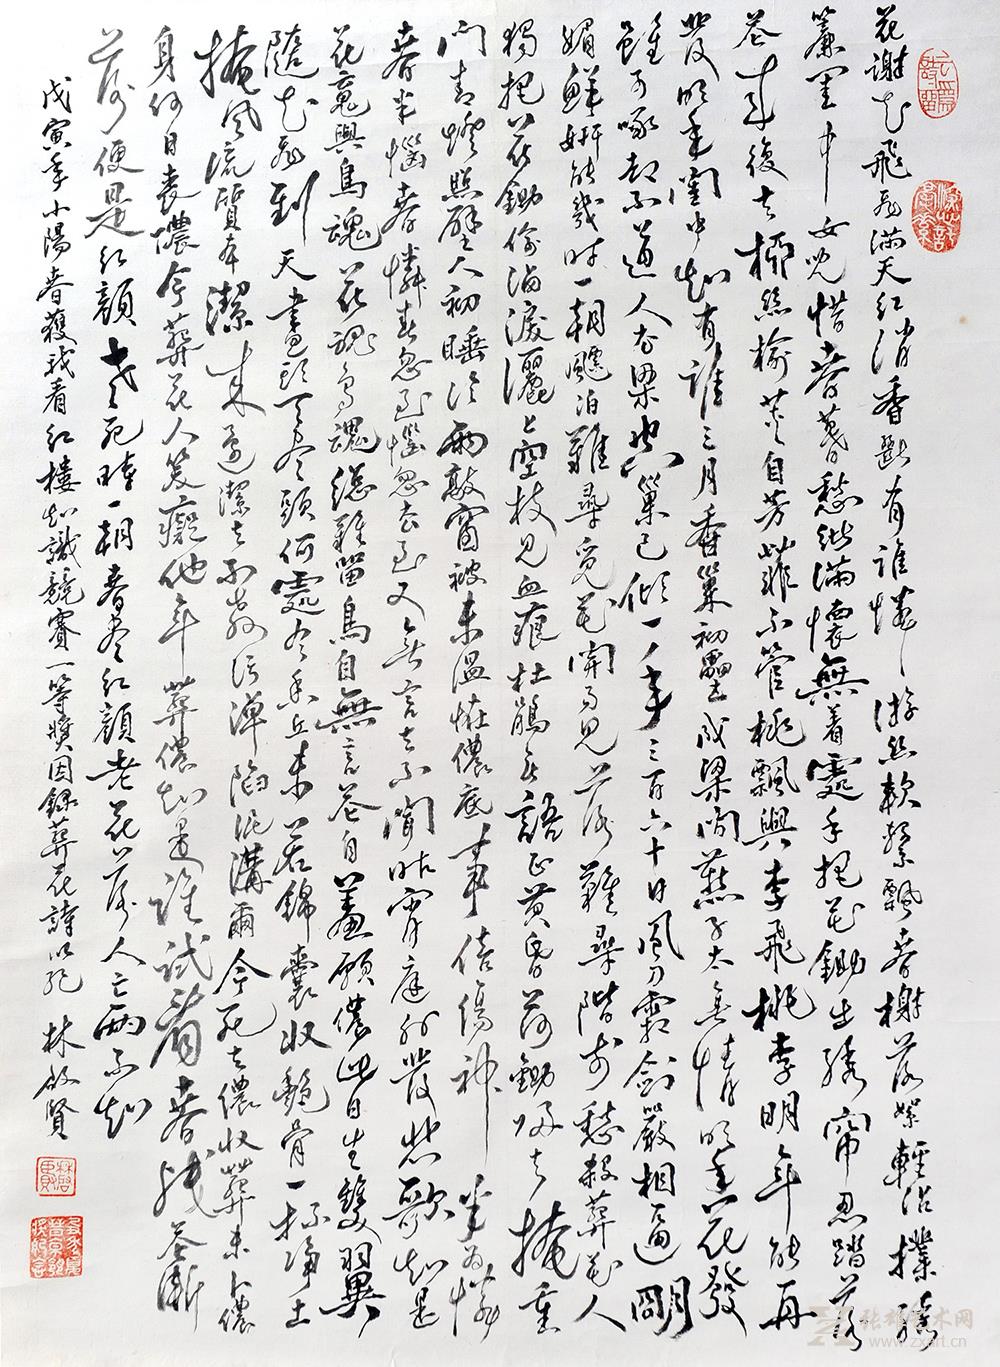 花謝花飛飛滿天紅消香斷有誰憐游絲軟繫飄春榭落絮輕沾撲繡
簾閨中女兒惜春暮愁緒滿懷無着處手把花鋤出繡帘忍踏落
花來復去柳絲榆莢自芳菲不管桃飄與李飛桃李明年能再
發明年閨中知有誰三月香巢初壘成梁間燕子太無情明年花發
雖可啄却不道人去梁空巢已傾一年三百六十日風刀霜劍嚴相逼明
媚鮮妍能幾時一朝飄泊難尋覓花開易見落難尋階前愁殺葬花人
獨把花鋤偷洒淚灑上空枝見血痕杜鵑無語正黃昏荷鋤歸去掩重
門青燈照壁人初睡冷雨敲窗被未溫怪儂底事倍傷神半為憐
春半惱春憐春忽至惱忽去至又無言去不聞昨宵庭外發悲歌知是
花魂與鳥魂花魂鳥魂總難留鳥自無言花自羞願儂此日生雙翼
隨花飛到天盡頭天盡頭何處有香丘未若錦囊收艷骨一抔淨土
掩風流質本潔來還潔去不教污淖陷泥溝爾今死去儂收葬未卜儂
身何日喪儂今葬花人笑癡他年葬儂知是誰試看春殘花漸
落便是紅顏老死時一朝春盡紅顏老花落人亡兩不知
戊寅年小陽春獲我看紅樓知識競賽一等獎因錄葬花詩以記 林啟賢
张雄艺术网
www.zxart.cn